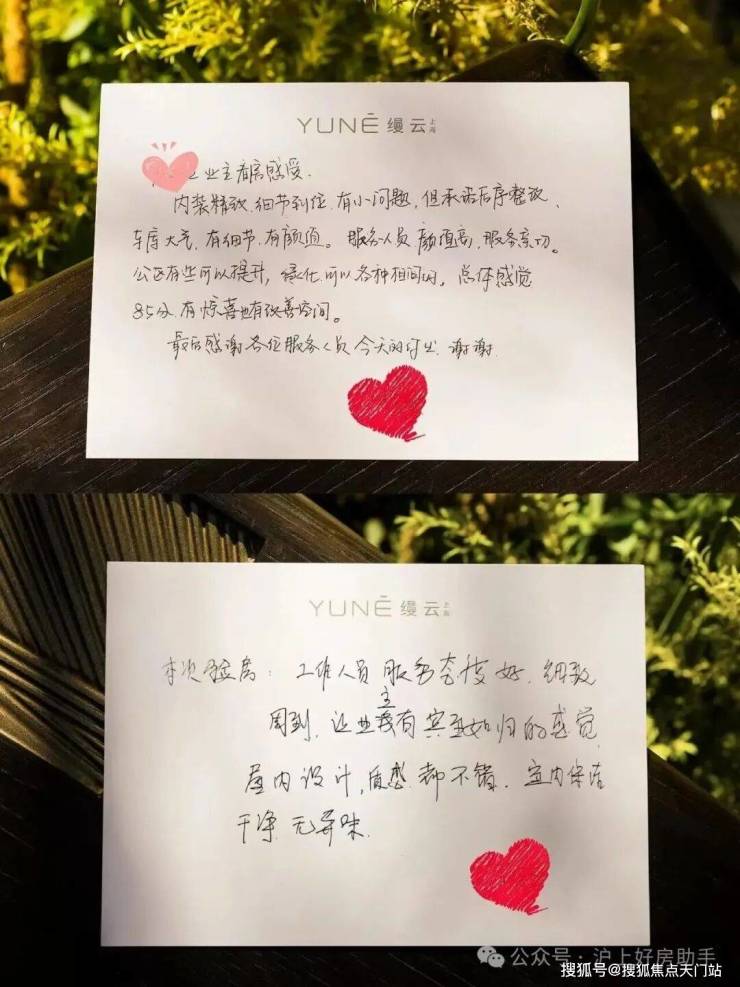 YUNĒ 缦云上海
业主看房感受.
内装精致.细节到位.有小问题,但承诺后序整改、
车库大气,有细节.有颜值。服务人员颜值高,服务亲切。
公区有些可以提升,绿化可以各种相间的。总体感觉
85分.有惊喜也有改善空间。
最后感谢各位服务人员今天的付出.谢谢.
YUNĒ 缦云上海
本次验房:工作人员服务态度好.细致
周到.让业主有宾至如归的感觉
屋内设计,质量都不错.室内保洁
干净.无异味.
公众号·沪上好房助手
搜狐号@搜狐焦点天门站